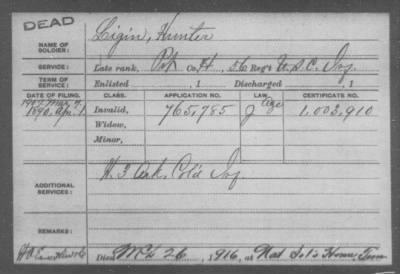 DEAD
NAME OF SOLDIER: Ligin, Hunter
SERVICE: Late rank, Pvt Co. H, 56 Reg't U.S.C. Inf.
TERM OF SERVICE: Enlisted , 1 Discharged , 1
DATE OF FILING. CLASS. APPLICATION NO. LAW. CERTIFICATE NO.
1907 Mar. 7. Age
1890, Apr. 1 Invalid, 765,785 J 1,003,910
Widow,
Minor,
ADDITIONAL SERVICES: H. 3 Ark. Col'd Inf
REMARKS:
Died Mch 26, 1916, at Nat Sol's Home, Tenn